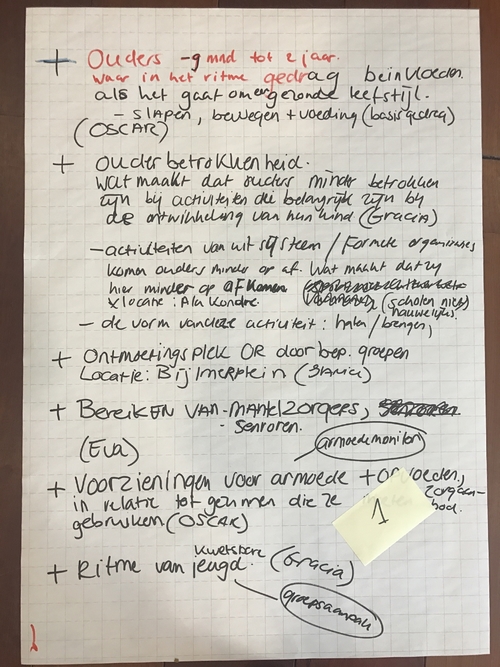 + Ouders -9 mnd tot 2 jaar.
waar in het ritme gedrag beinvloeden.
als het gaat om een gezonde leefstijl.
- slapen, bewegen + voeding (basisgedrag)
(OSCAR)
+ ouderbetrokkenheid.
Wat maakt dat ouders minder betrokken
zijn bij activiteiten die belangrijk zijn bij
de ontwikkeling van hun kind (Gracia)
- activiteiten van uit systeem / Formele organisaties
komen ouders minder op af. Wat maakt dat zij
hier minder op af komen
x locatie: Ala Kondre. (scholen niet)
nauwelijks.
- de vorm van deze activiteit: halen / brengen,
+ Ontmoetingsplek OR door bep. groepen
Locatie: Bijlmerplein
+ Bereiken VAN -mantelzorgers,
- Senioren.
(Eva)
armoedemonitor
+ Voorzieningen voor armoede + opvoeden,
in relatie tot gezinnen die ze
gebruiken (OSCAR)
1
+ Ritme van kwetsbare jeugd. (Gracia)
groepsaanpak